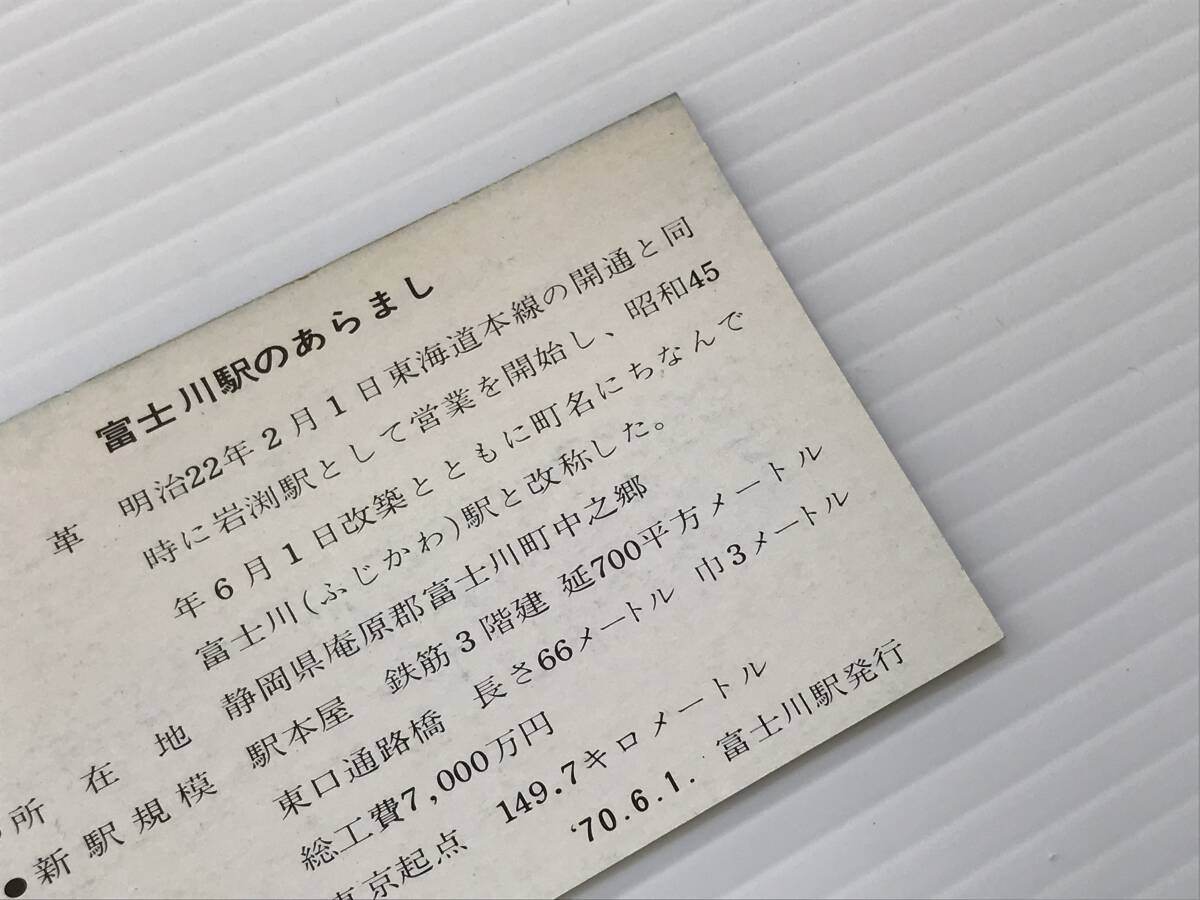 富士川駅のあらまし
革 明治22年2月1日東海道本線の開通と同
時に岩渕駅として営業を開始し、昭和45
年6月1日改築とともに町名にちなんで
富士川(ふじかわ)駅と改称した。
所在地 静岡県庵原郡富士川町中之郷
●新駅規模 駅本屋 鉄筋3階建 延700平方メートル
東口通路橋 長さ66メートル 巾3メートル
総工費7,000万円
東京起点 149.7キロメートル
'70.6.1. 富士川駅発行